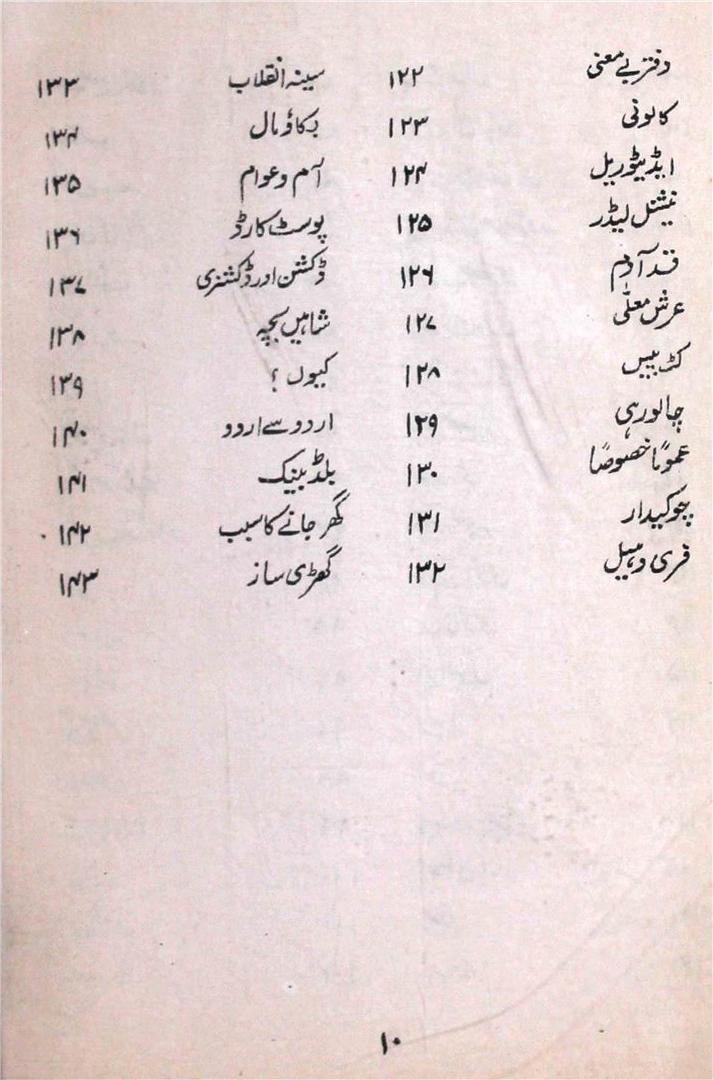 دفتر بے معنی ۱۲۲
کالونی ۱۲۳
ایڈیٹوریل ۱۲۴
نیشنل لیڈر ۱۲۵
قد آدم ۱۲۶
عرش معلّٰی ۱۲۷
کٹ پیس ۱۲۸
چالو رہی ۱۲۹
عموماً خصوصاً ۱۳۰
چوکیدار ۱۳۱
فری وہیل ۱۳۲
سینہ انقلاب ۱۳۳
بکاؤ مال ۱۳۴
آم و عوام ۱۳۵
پوسٹ کارڈ ۱۳۶
ڈکشن اور ڈکشنری ۱۳۷
شاہیں بچہ ۱۳۸
کیوں ؟ ۱۳۹
اردو سے اردو ۱۴۰
بلڈ بینک ۱۴۱
گھر جانے کا سبب ۱۴۲
گھڑی ساز ۱۴۳
۱۰